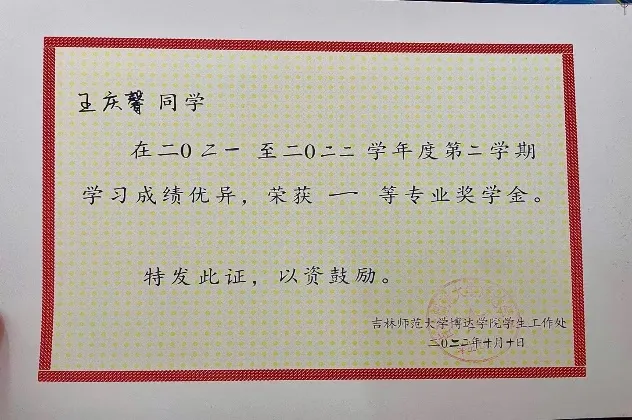 王庆馨 同学
在二〇二一 至二〇二二 学年度第二学期
学习成绩优异，荣获 一 等专业奖学金。
特发此证，以资鼓励。
吉林师范大学博达学院学生工作处
二〇二二年十月十日